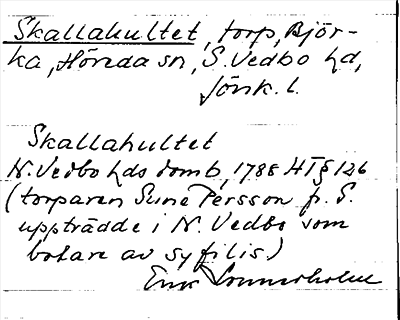 Skallahultet, torp, Björ-
ka, Höreda sn, S. Vedbo hd,
Jönk. l.
Skallahultet
N. Vedbo hds domb, 1788 HT § 126
(torparen Sune Persson fr. S.
uppträdde i N. Vedbo som
botare av syfilis)
Erik